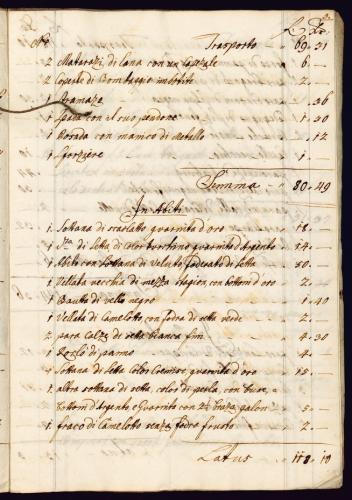 Trasporto " 69 . 31
2 Matarazi di lana con un capezale " 6 . —
2 Coperte di Bombaggio imbotite " 2 . —
1 Stramazo " . 36
1 Spada con il suo pendone " 1 . 30
1 Corada con manico di Metallo " . 12
1 Sporziere " 1 . —
Summa " 80 . 49
In Abiti
1 Sottana di scarlatto guarnita d'oro " 18 . —
1 di setta di color turchino guarnita d'Argento " 14 . —
1 Abito con sottana di Veluto foderato di setta " 50 . —
1 Vellata vecchia di mezza stagion, con bottoni d'oro " 2 . —
1 Bauta di vello negro " 1 . 40
1 Vellata di Camelotto con fodra di setta verde " 2 . —
2 para Calze di setta bianca fini " 4 . 30
1 di panno " 4 . —
1 Sottana di setta color guarnita d'oro " 15 . —
1 altra sottana di setta color di perla, con
bottoni d'Argento e guarnito con galon " 5 . —
1 fraco di Camelotto senza fodra frusto " 2 . —
Latus " 118 . 10